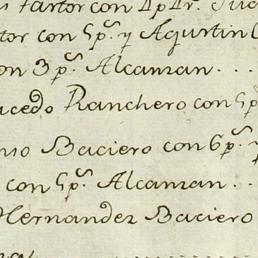 Partor con 4 p.
tor con 5 p.s y Agustin
on 3 p.s Alcanzan . . .
acedo Ranchero con 5 p
nio Baciero con 6 p.s y
con 5 p.s Alcanzan . .
Hernandez Baciero